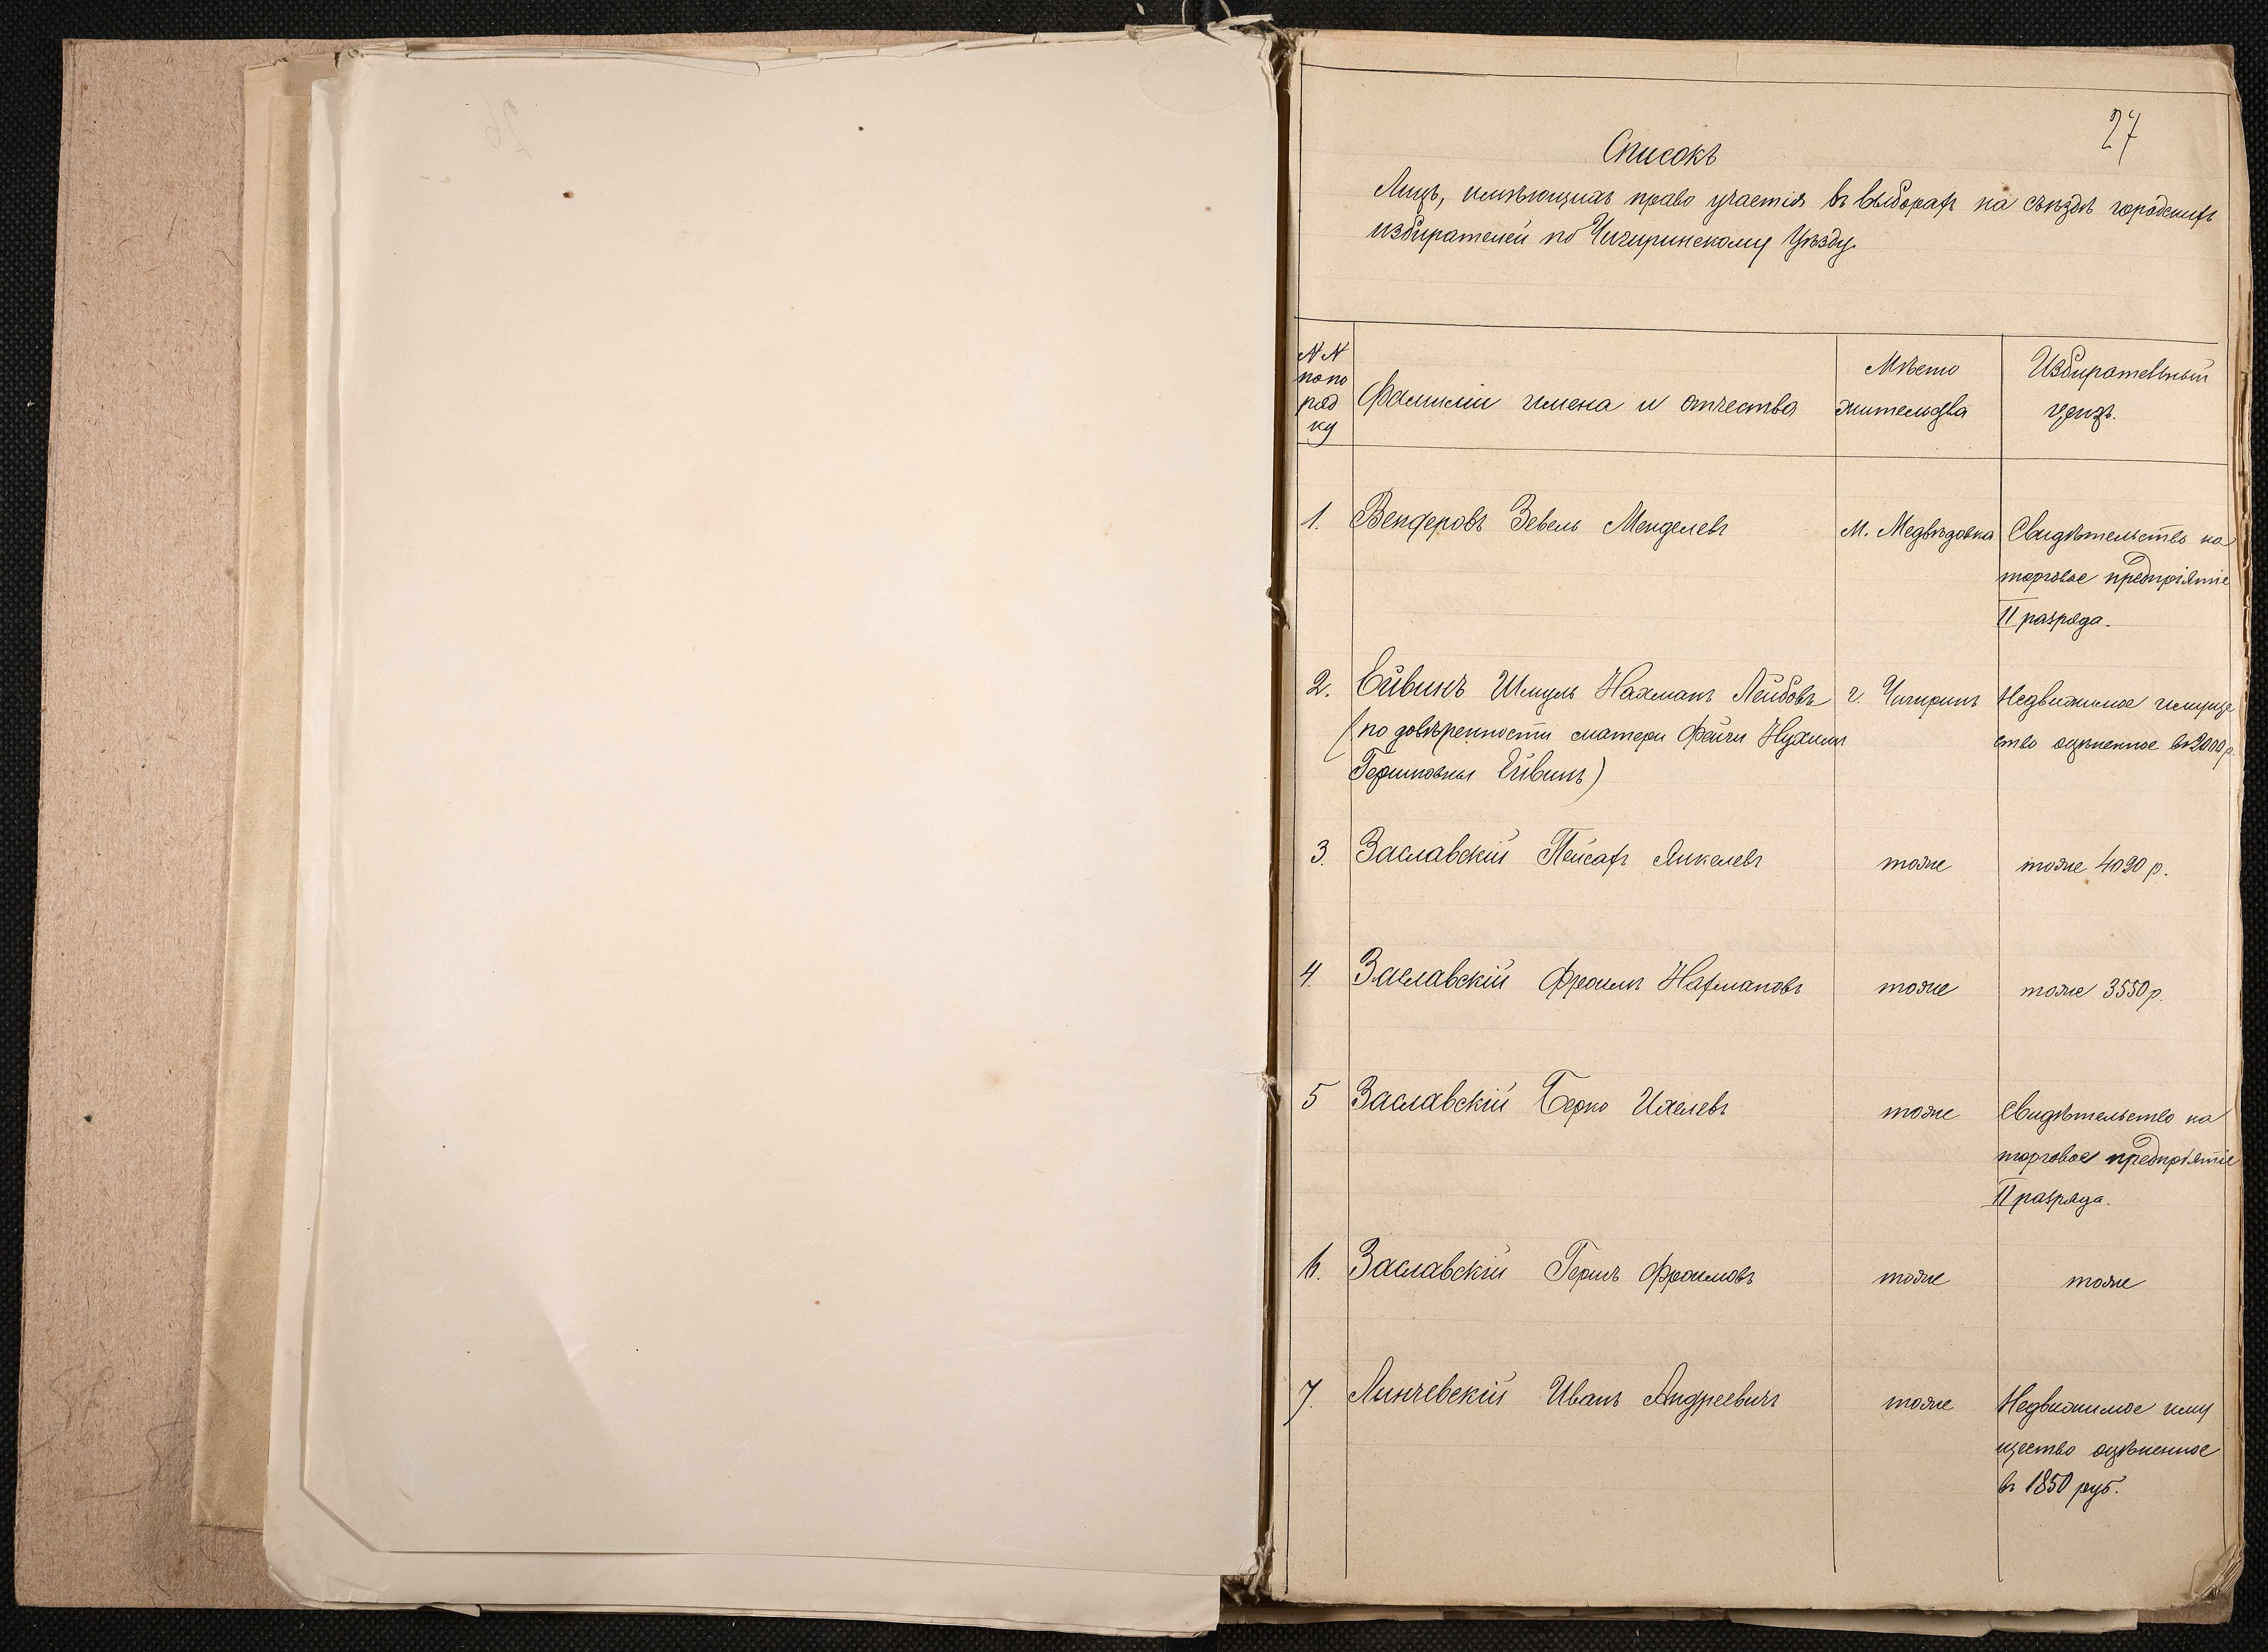 27
Списокъ
Лицъ, имѣющихъ право участія въ выборахъ на съѣздѣ городскихъ
избирателей по Чигиринскому Уѣзду.
NN
по по
ряд
ку
Фамиліи имена и отчества
Мѣсто
жительства
Избирательный
цензъ.
1. Вендеровъ Зевель Менделевъ
М. Медвѣдовка
Свидѣтельство на
торговое предпріятіе
II разряда.
2. Ейвинъ Шмуль Нахманъ Лейбовъ
(по довѣренности матери Фейги Нухимы
Гершковны Ейвинъ)
г. Чигиринъ
Недвижимое имуще
ство оцѣненное въ 2000 р.
3. Заславскій Пейсахъ Янкелевъ
тоже
тоже 4020 р.
4. Заславскій Фроимъ Нахмановъ
тоже
тоже 3550 р.
5 Заславскій Берко Ихелевъ
тоже
Свидѣтельство на
торговое предпріятіе
II разряда.
6. Заславскій Гершъ Фроимовъ
тоже
тоже
7. Линчевскій Иванъ Андреевичъ
тоже
Недвижимое иму
щество оцѣненное
въ 1850 руб.